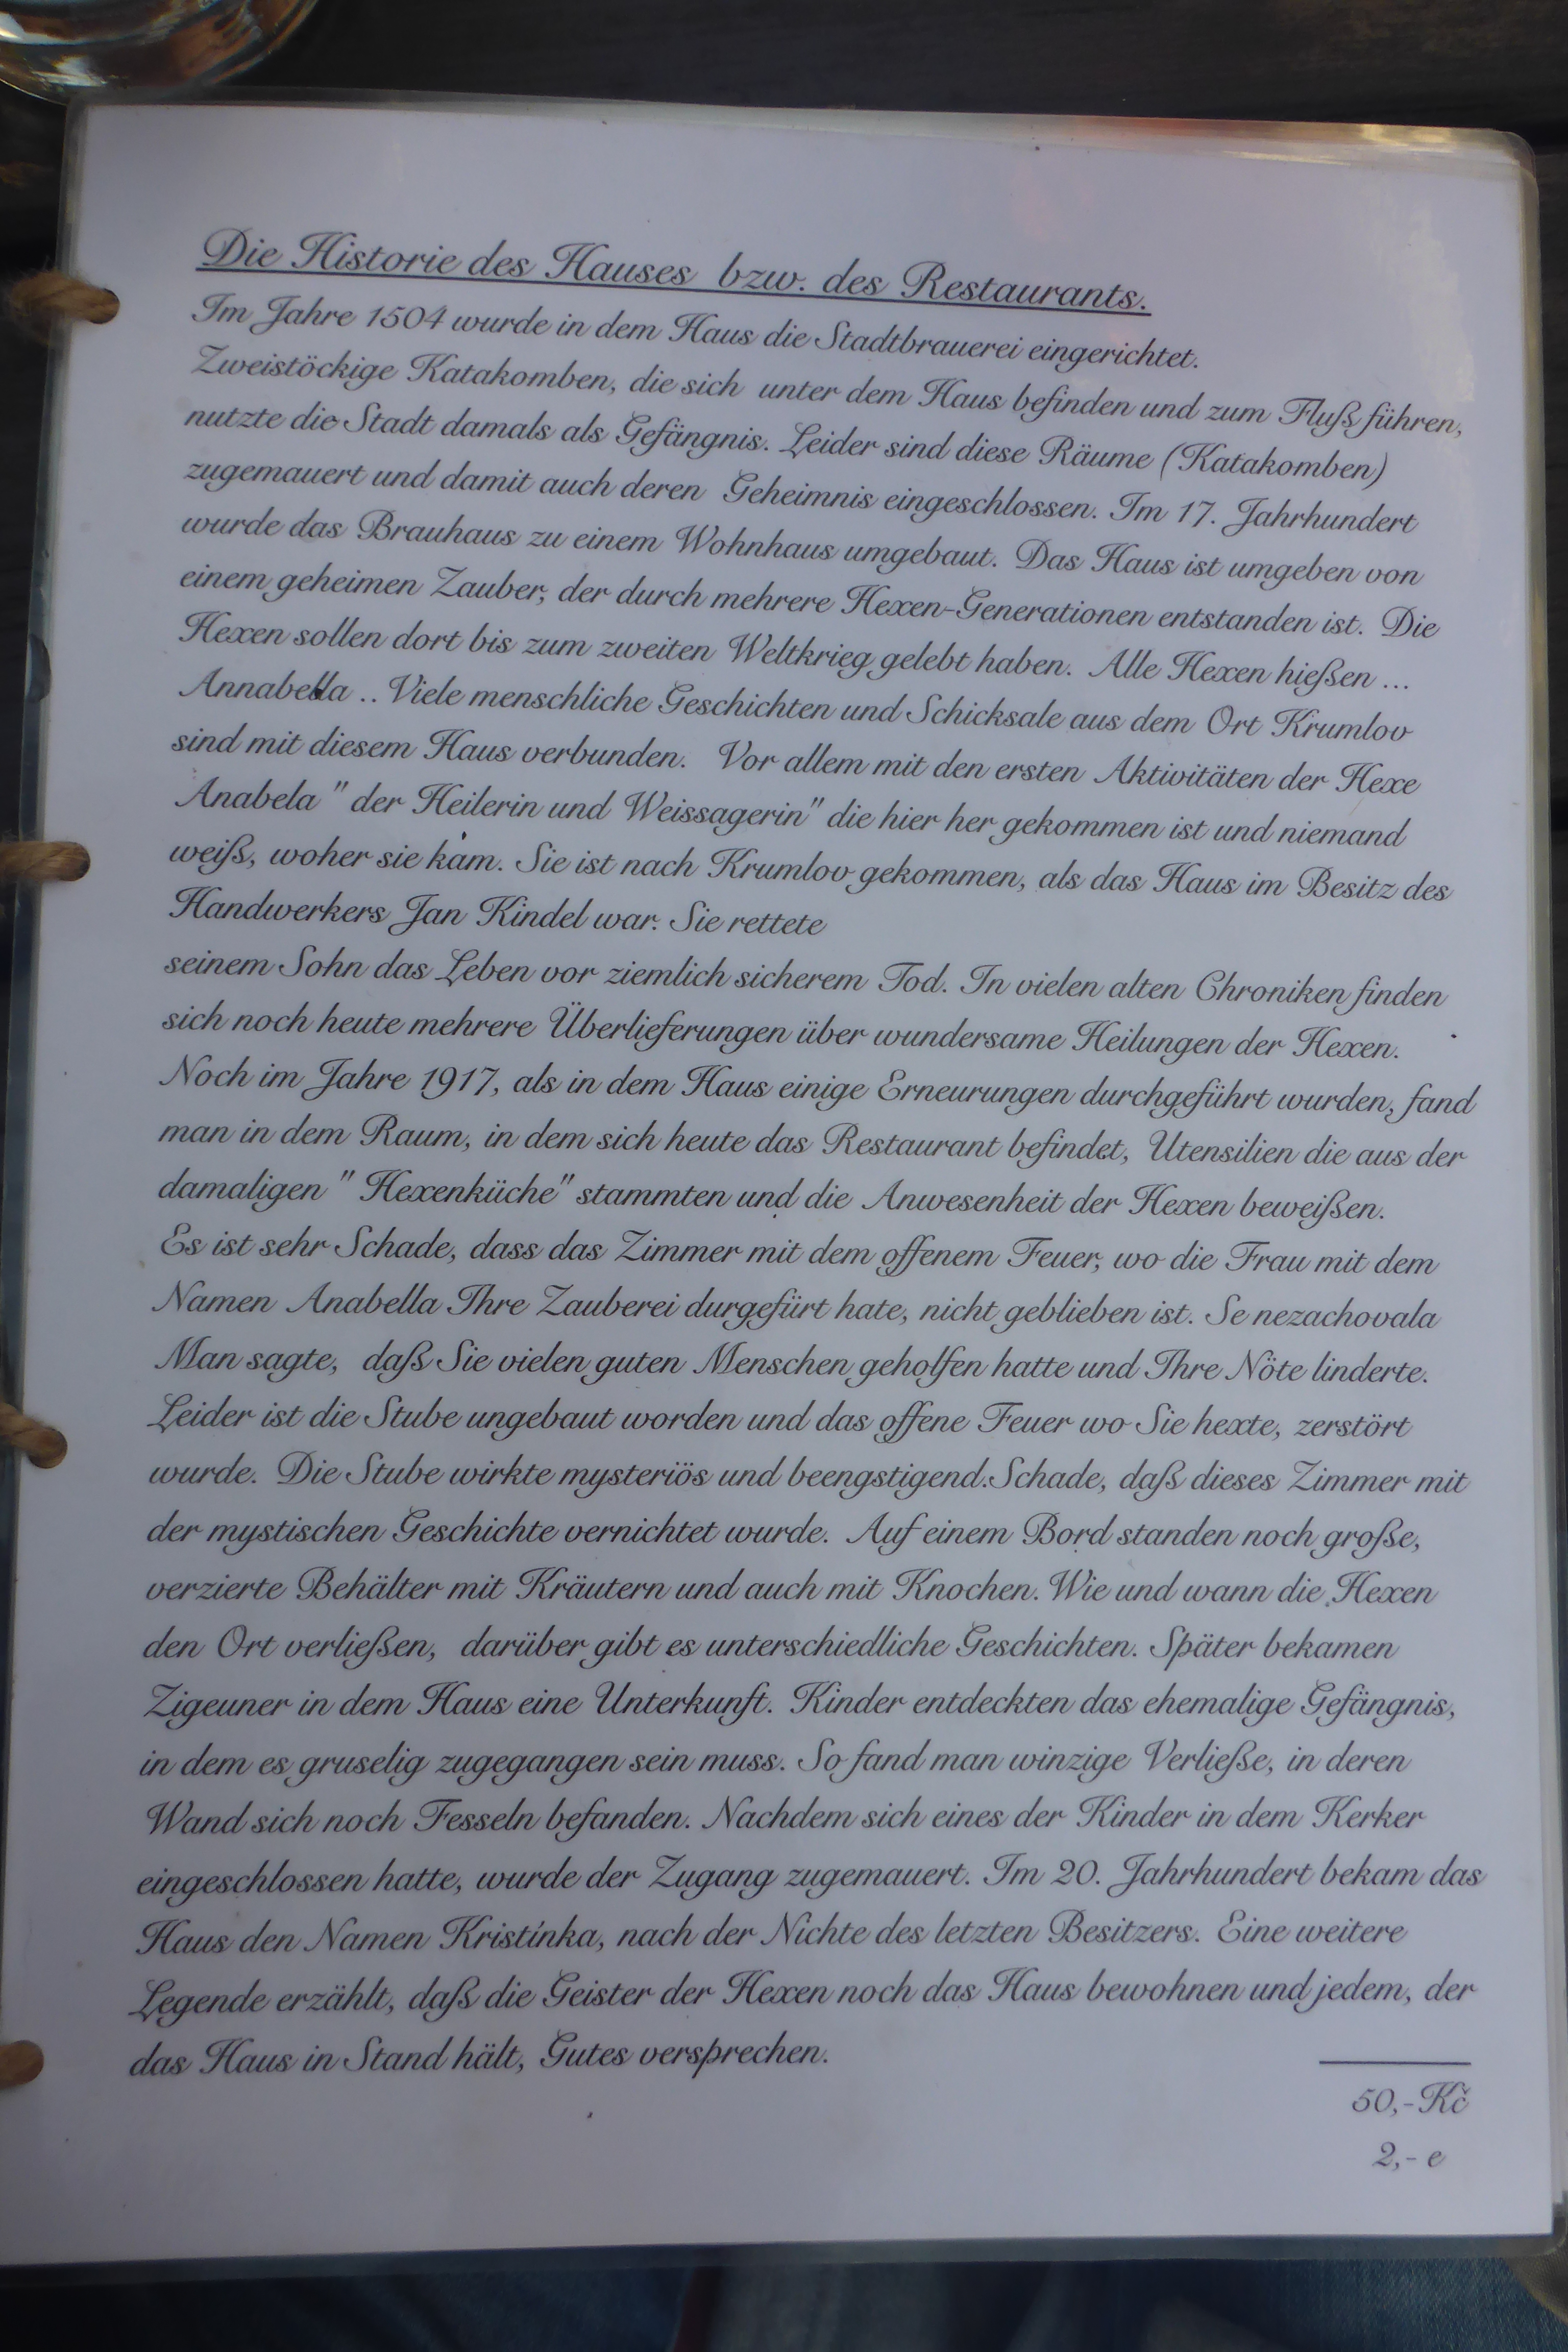 Die Historie des Hauses bzw. des Restaurants.
Im Jahre 1504 wurde in dem Haus die Stadtbrauerei eingerichtet.
Zweistöckige Katakomben, die sich unter dem Haus befinden und zum Fluß führen,
nutzte die Stadt damals als Gefängnis. Leider sind diese Räume (Katakomben)
zugemauert und damit auch deren Geheimnis eingeschlossen. Im 17. Jahrhundert
wurde das Brauhaus zu einem Wohnhaus umgebaut. Das Haus ist umgeben von
einem geheimen Zauber, der durch mehrere Hexen-Generationen entstanden ist. Die
Hexen sollen dort bis zum zweiten Weltkrieg gelebt haben. Alle Hexen hießen ...
Annabella .. Viele menschliche Geschichten und Schicksale aus dem Ort Krumlov
sind mit diesem Haus verbunden. Vor allem mit den ersten Aktivitäten der Hexe
Anabela " der Heilerin und Weissagerin" die hier her gekommen ist und niemand
weiß, woher sie kam. Sie ist nach Krumlov gekommen, als das Haus im Besitz des
Handwerkers Jan Kindel war. Sie rettete
seinem Sohn das Leben vor ziemlich sicherem Tod. In vielen alten Chroniken finden
sich noch heute mehrere Überlieferungen über wundersame Heilungen der Hexen.
Noch im Jahre 1917, als in dem Haus einige Erneurungen durchgeführt wurden, fand
man in dem Raum, in dem sich heute das Restaurant befindet, Utensilien die aus der
damaligen " Hexenküche" stammten und die Anwesenheit der Hexen beweißen.
Es ist sehr Schade, dass das Zimmer mit dem offenem Feuer, wo die Frau mit dem
Namen Anabella Ihre Zauberei durgefürt hate, nicht geblieben ist. Se nezachovala
Man sagte, daß Sie vielen guten Menschen geholfen hatte und Ihre Nöte linderte.
Leider ist die Stube ungebaut worden und das offene Feuer wo Sie hexte, zerstört
wurde. Die Stube wirkte mysteriös und beengstigend.Schade, daß dieses Zimmer mit
der mystischen Geschichte vernichtet wurde. Auf einem Bord standen noch große,
verzierte Behälter mit Kräutern und auch mit Knochen. Wie und wann die Hexen
den Ort verließen, darüber gibt es unterschiedliche Geschichten. Später bekamen
Zigeuner in dem Haus eine Unterkunft. Kinder entdeckten das ehemalige Gefängnis,
in dem es gruselig zugegangen sein muss. So fand man winzige Verließe, in deren
Wand sich noch Fesseln befanden. Nachdem sich eines der Kinder in dem Kerker
eingeschlossen hatte, wurde der Zugang zugemauert. Im 20. Jahrhundert bekam das
Haus den Namen Kristínka, nach der Nichte des letzten Besitzers. Eine weitere
Legende erzählt, daß die Geister der Hexen noch das Haus bewohnen und jedem, der
das Haus in Stand hält, Gutes versprechen.
50,- Kč
2,- e